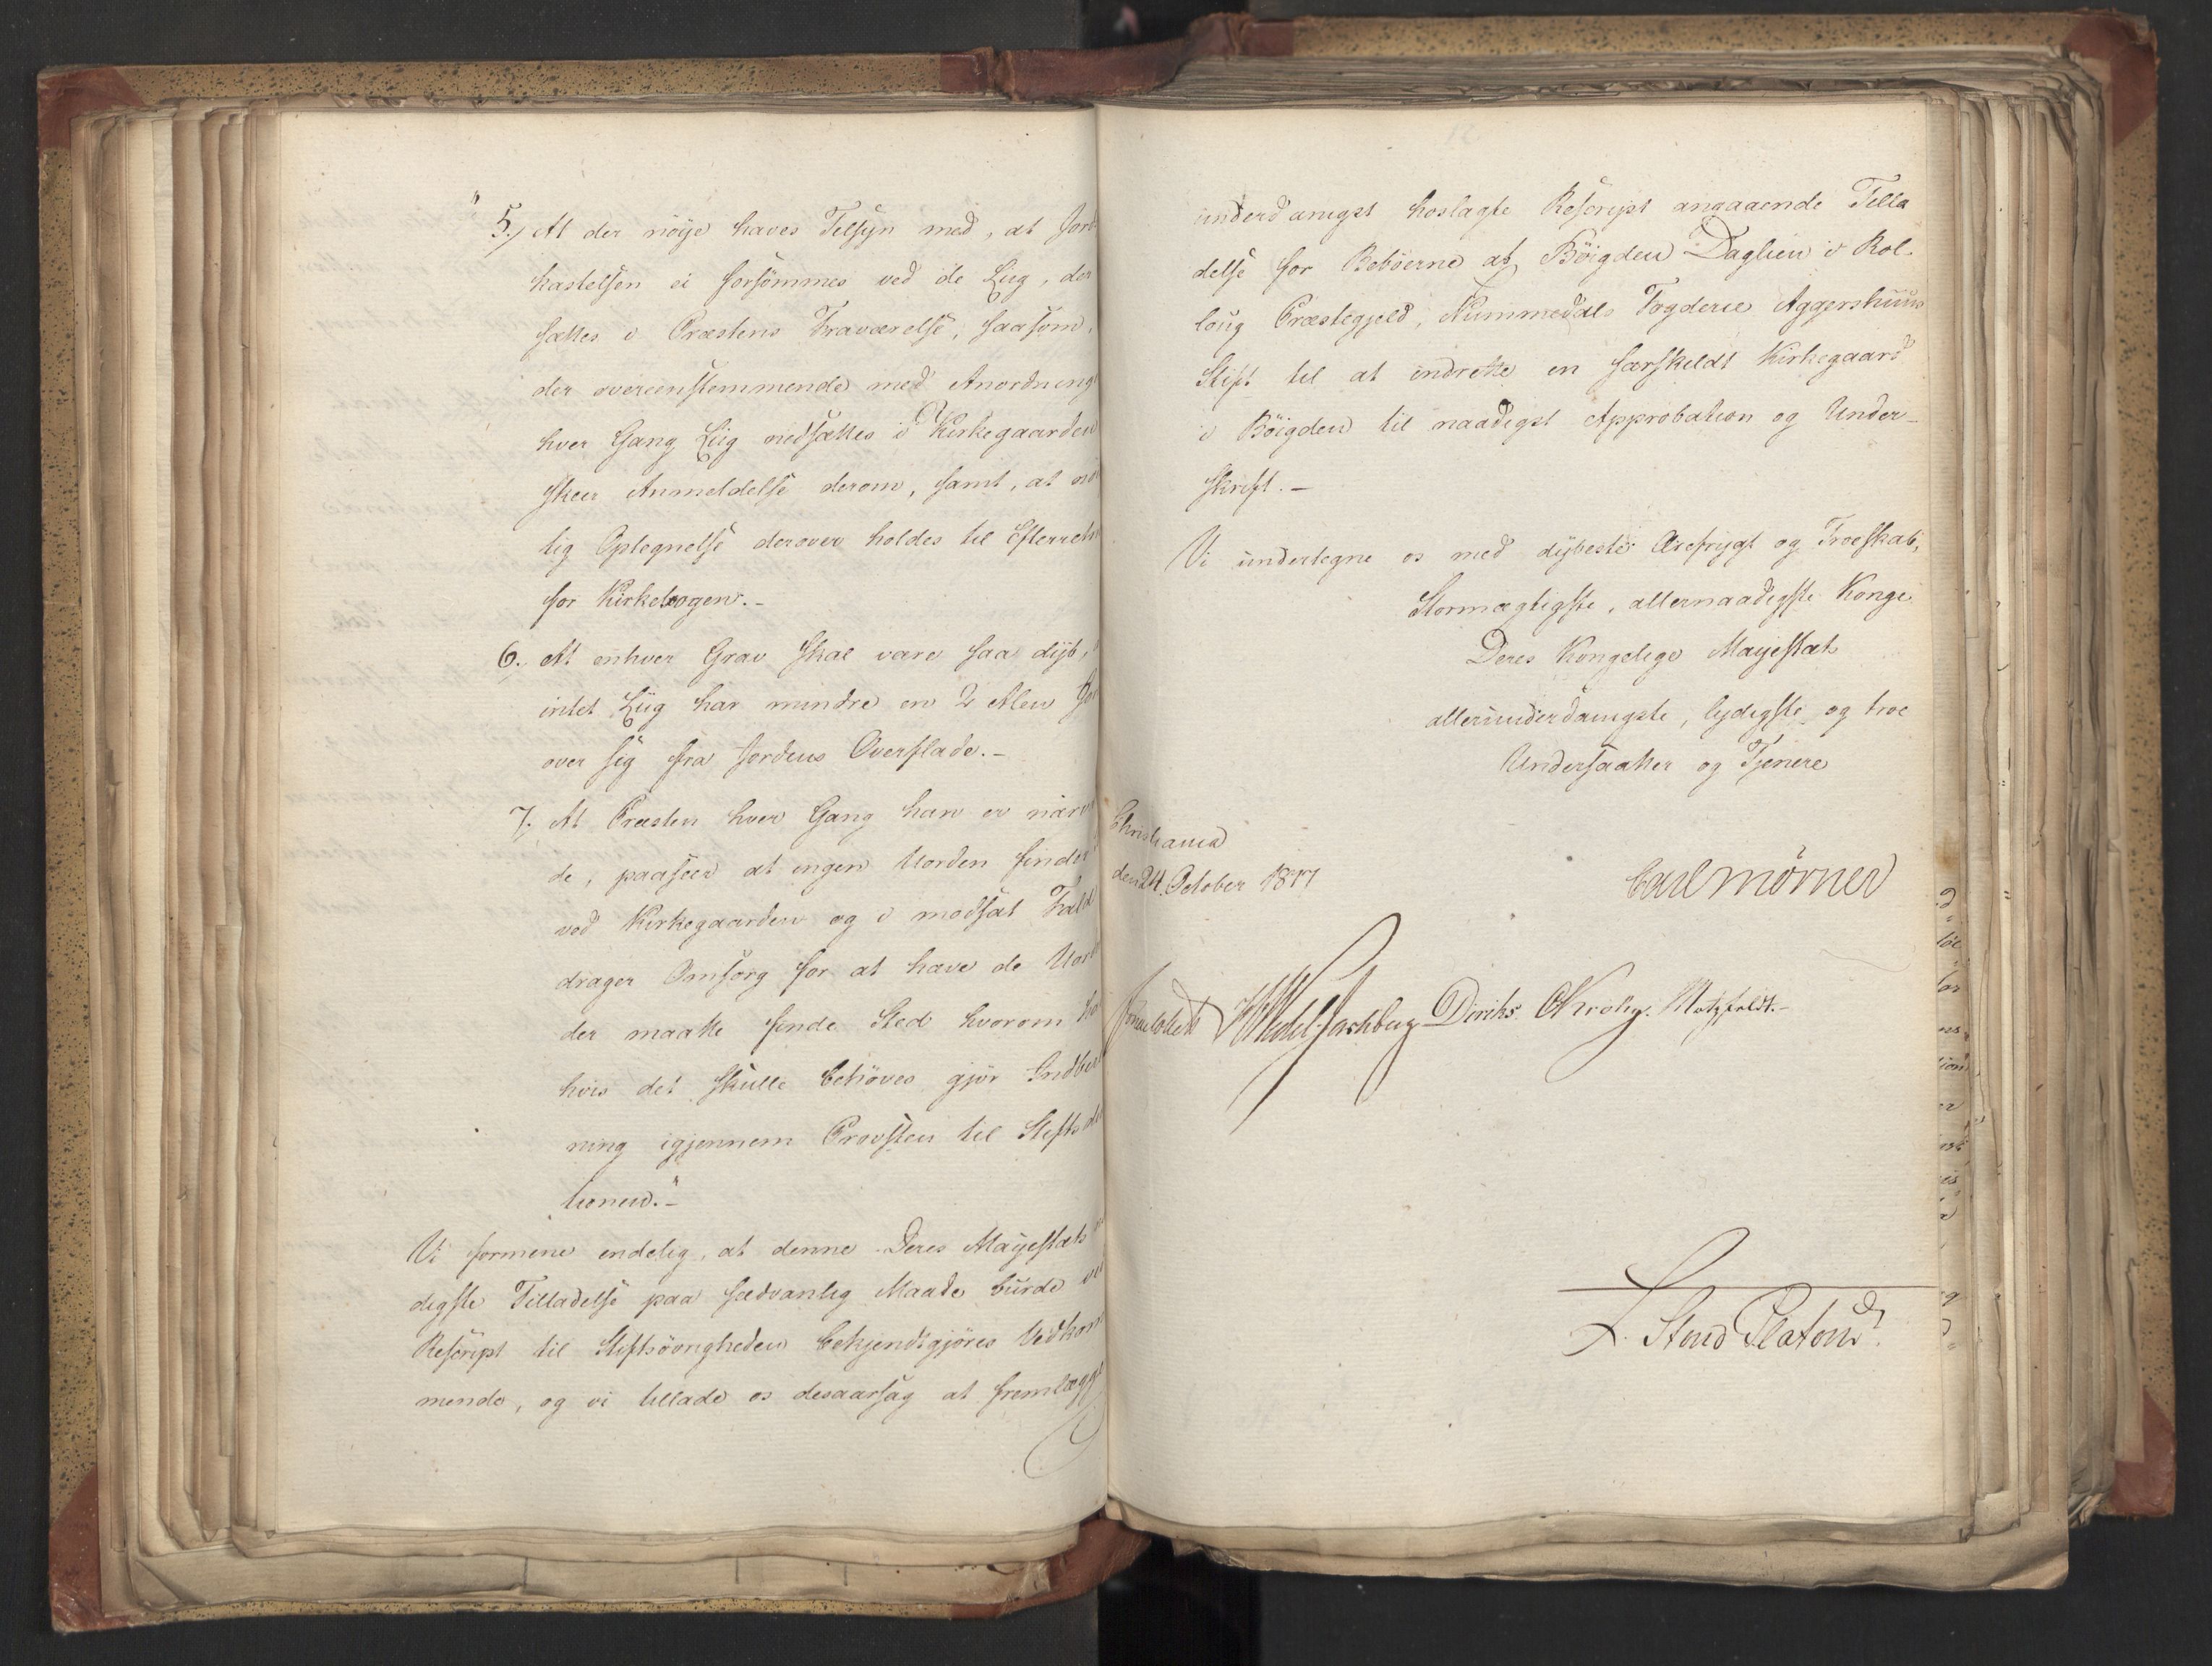 "5.) At der nöÿe haves Tilsÿn med, at Jord
kastelsen ei forsömmes ved de Liig, der
sættes i Præstens Fraværelse, saasom,
der overeenstemmende med Anordning
hver Gang Liig nedsættes i Kirkegaarden
skeer Anmeldelse derom, samt, at nöi
tig Optegnelse derover holdes til Efterretn
for Kirkebogen.-
6. At enhver Grav skal være saa dÿb,
intet Liig har mindre en 2 Alen Jor
over sig fra Jordens Overflade.-
7. At Præsten hver Gang han er nærv
de, paaseer at ingen Uorden finder
ved Kirkegaarden og i modsat Fald
drager Omsorg for at hæve de Uord
der maatte finde Sted hvorom ha
hvis det skulle behöves gjör Indber
ning igjennem Provsten til Stiftsdi
tionen."-
Vi formene endelig, at denne Deres Mayestæts
digste Tilladelse paa sædvanlig Maade burde ved
Rescript til Stiftsövrigheden bekjendtgjöres Vedkom
mende, og vi tillade os desaarsag at fremlægge
underdanigst hoslagte Rescript angaaende Tilla
delse for Beboerne af Böigden Daglien i Rol-
loug Præstegjeld, Nummedals Fogderie Aggershuus
Stift til at indrette en særskildt Kirkegaard
i Böigden til naadigst Approbation og Under-
skrift.-
Vi undertegne os med dÿbeste Ærefrygt og Troeskab,
Stormægtigste, allernaadigste Konge
Deres Kongelige Mayestæts
allerunderdanigste, lydigste og troe
Undersaatter og Tjenere
Christiania
den 24 October 1817
Carl Mörner
Jonas Collett HWedel Jarlsberg Diriks CKrohg. Motzfeldt.-